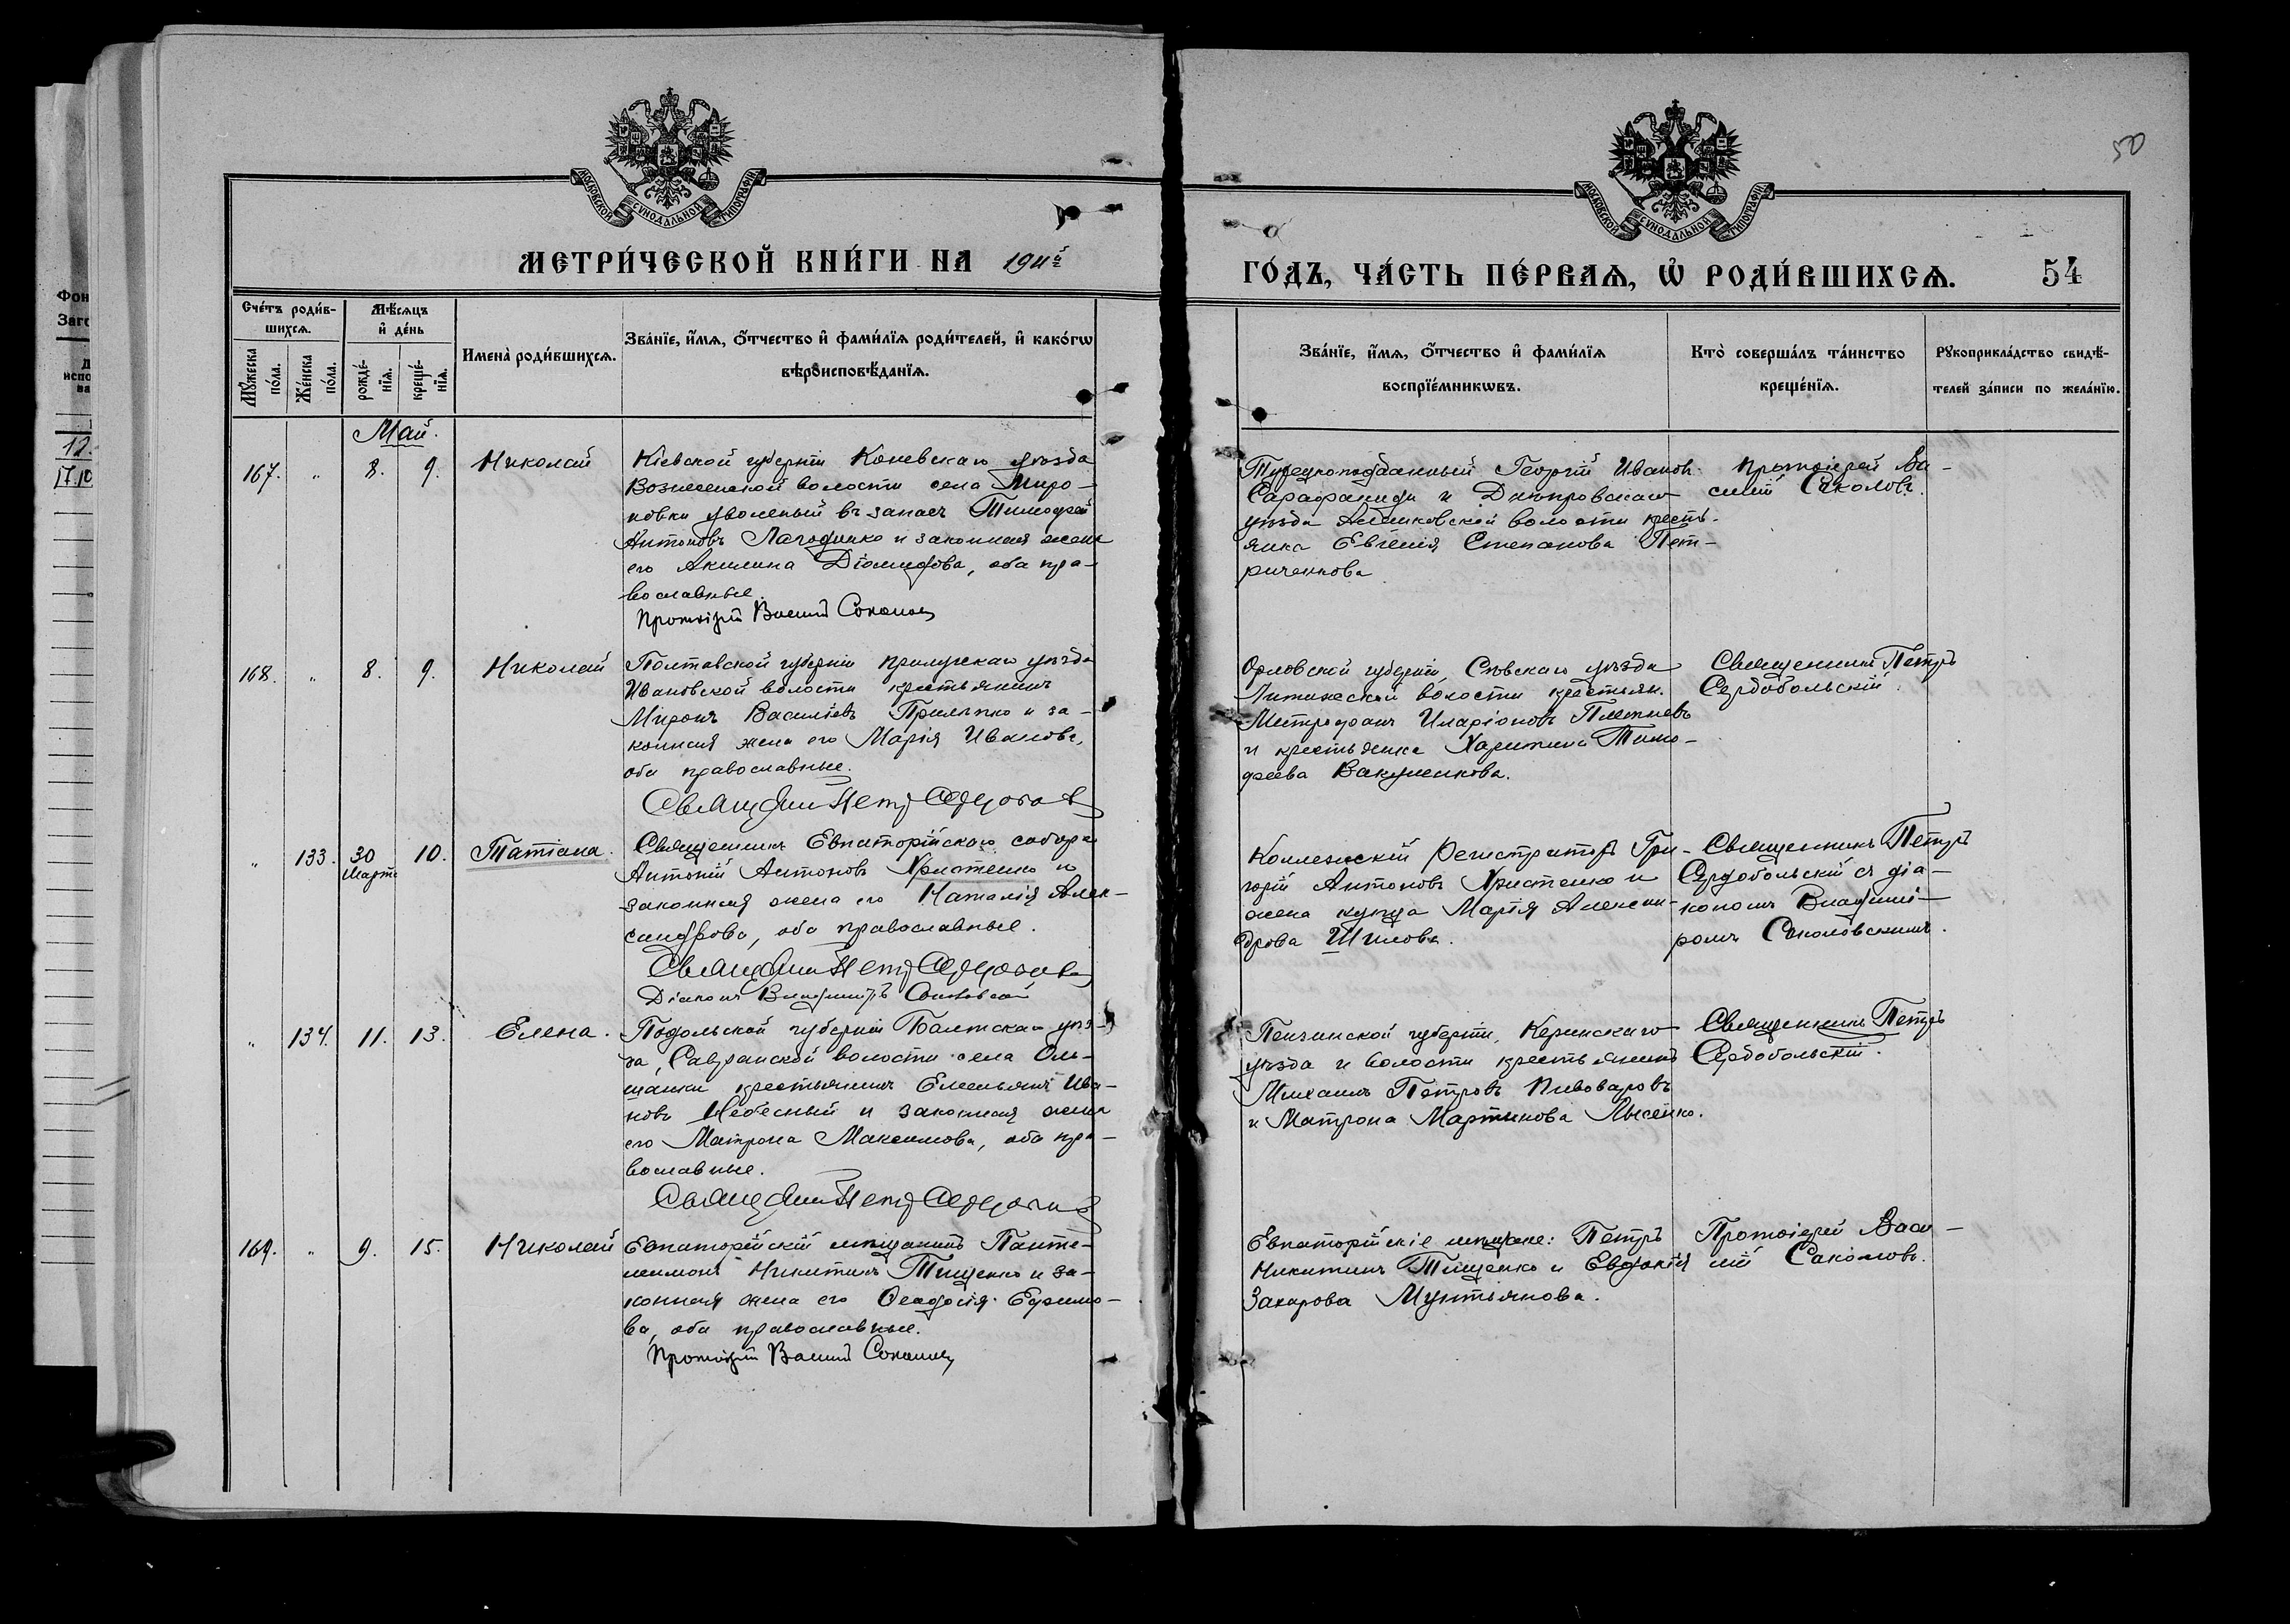 50
МОСКОВСКОЙ СУНОДАЛЬНОЙ ТИПОГРАФІИ
МОСКОВСКОЙ СУНОДАЛЬНОЙ ТИПОГРАФІИ
МЕТРИ́ЧЕСКОЙ КНИ́ГИ НА 1911й
ГО́ДЪ, ЧА́СТЬ ПЕ́РВАѦ, Ѡ҆ РОДИ́ВШИХСѦ. 54
Сче́тъ роди́в-
шихсѧ.
Мꙋ́жеска
по́ла.
Же́нска
по́ла.
Мѣ́сѧцъ
и҆ де́нь
рожде́-
нїѧ.
креще́-
нїѧ.
Имена̀ роди́вшихсѧ.
Зва́нїе, и҆́мѧ, ѻ҆́тчество и҆ фами́лїѧ роди́телей, и҆ како́гѡ
вѣроисповѣ́данїѧ.
Зва́нїе, и҆́мѧ, ѻ҆́тчество и҆ фами́лїѧ
воспрїе́мникѡвъ.
Кто̀ соверша́лъ та́инство
креще́нїѧ.
Рꙋкоприкла́дство свидѣ́-
телей за́писи по жела́нїю.
Фон
Заго
испо
ва
12.
17.10
Май.
167. " 8. 9. Николай
Кіевской губерніи Каневскаго уѣзда
волости села Миро-
новки уволеный въ запасъ Тимофей
Антоновъ Лагоденко и законная жена
его Акилина Діомидова, оба пра-
вославные.
Протоіерей Василій Соколовъ
Турецкоподданный Георгій Иванов.
Сарафаниди и Днѣпровскаго
уѣзда волости кресть-
янка Евгенія Степанова Пет-
риченкова
Протоіерей Ва-
силій Соколовъ.
168. " 8. 9. Николай
Полтавской губерніи Прилукскаго уѣзда
Ивановской волости крестьянинъ
Миронъ Васильевъ Прилипко и за-
конная жена его Марія Иванова,
оба православные.
Священникъ Петръ
Орловской губерніи, Сѣвскаго уѣзда
волости крестьян.
Митрофанъ Иларіоновъ
и крестьянка Харитина Тимо-
феева Вакуленкова.
Священникъ Петръ
Сердобольскій.
" 133. 30 10. Татіана.
Марта
Священникъ Евпаторійскаго собора
Антоній Антоновъ Христенко и
законная жена его Наталія Алек-
сандрова, оба православные.
Священникъ Петръ
Діаконъ Владиміръ Соколовскій
Коллежскій Регистраторъ Гри-
горій Антоновъ Христенко и
жена купца Марія Алексан-
дрова Шилова.
Священникъ Петръ
Сердобольскій съ діа-
кономъ Владимі-
ромъ Соколовскимъ.
" 134. 11. 13. Елена.
Подольской губерніи Балтскаго уѣз-
да, Савранской волости села Оль-
шанки крестьянинъ Емельянъ Ива-
новъ Небесный и законная жена
его Матрона Максимова, оба пра-
вославные.
Священникъ Петръ
Пензинской губерніи, Керенскаго
уѣзда и волости крестьянинъ
Михаилъ Петровъ Пивоваровъ
и Матрона Мартинова Лысенко.
Священникъ Петръ
Сердобольскій.
169. " 9. 15. Николай
Евпаторійскій мѣщанинъ Панте-
леимонъ Никитинъ Тищенко и за-
конная жена его Ѳеодосія Ефимо-
ва, оба православные.
Протоіерей Василій Соколовъ
Евпаторійскіе мѣщане: Петръ
Никитинъ Тищенко и Евдокія
Захарова Мунтьянова.
Протоіерей Васи-
лій Соколовъ.